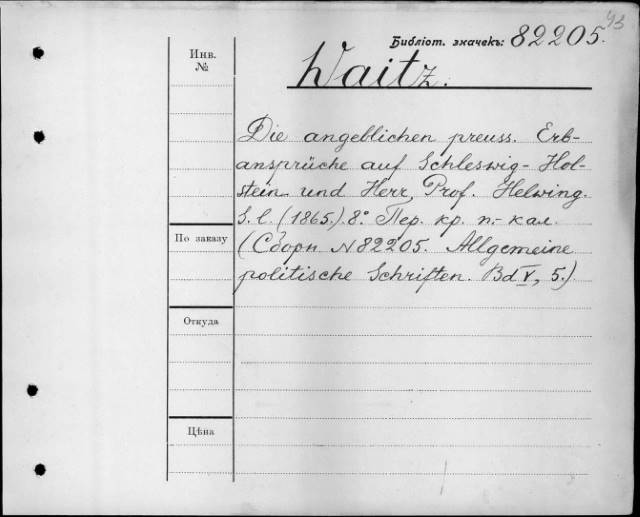 43
Библіот. значекъ: 82205.
Инв.
№
Waitz.
Die angeblichen preuss. Erb-
ansprüche auf Schleswig-Hol-
stein und Herr Prof. Helwing.
S. l. (1865). 8° Пер. кр. п.-кал.
По заказу
(Сборн. N 82205. Allgemeine
politische Schriften. Bd V, 5.)
Откуда
Цѣна